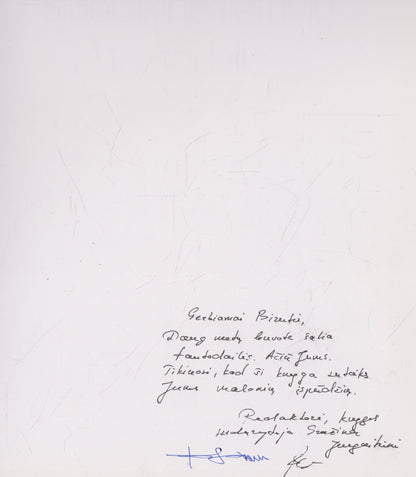 Gerbiamai Birutei,
Daug metų buvote šalia
tautodailės. Ačiū Jums.
Tikiuosi, kad ši knyga suteiks
Jums malonių įspūdžių.
Redaktorė, knygos
sudarytoja Gražina